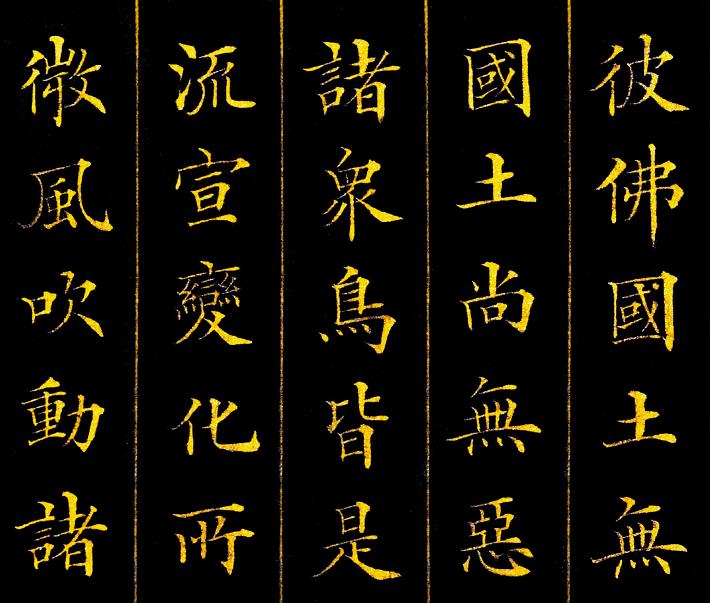 彼佛國土無
國土尚無惡
諸衆鳥皆是
流宣變化所
微風吹動諸